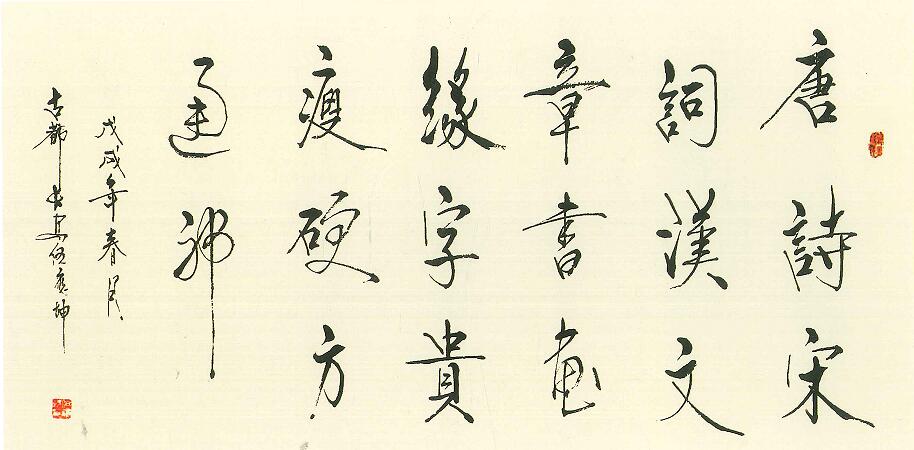 唐詩宋
詞漢文
章書畫
緣字貴
瘦硬方
通神
戊戌年春月
古都長安